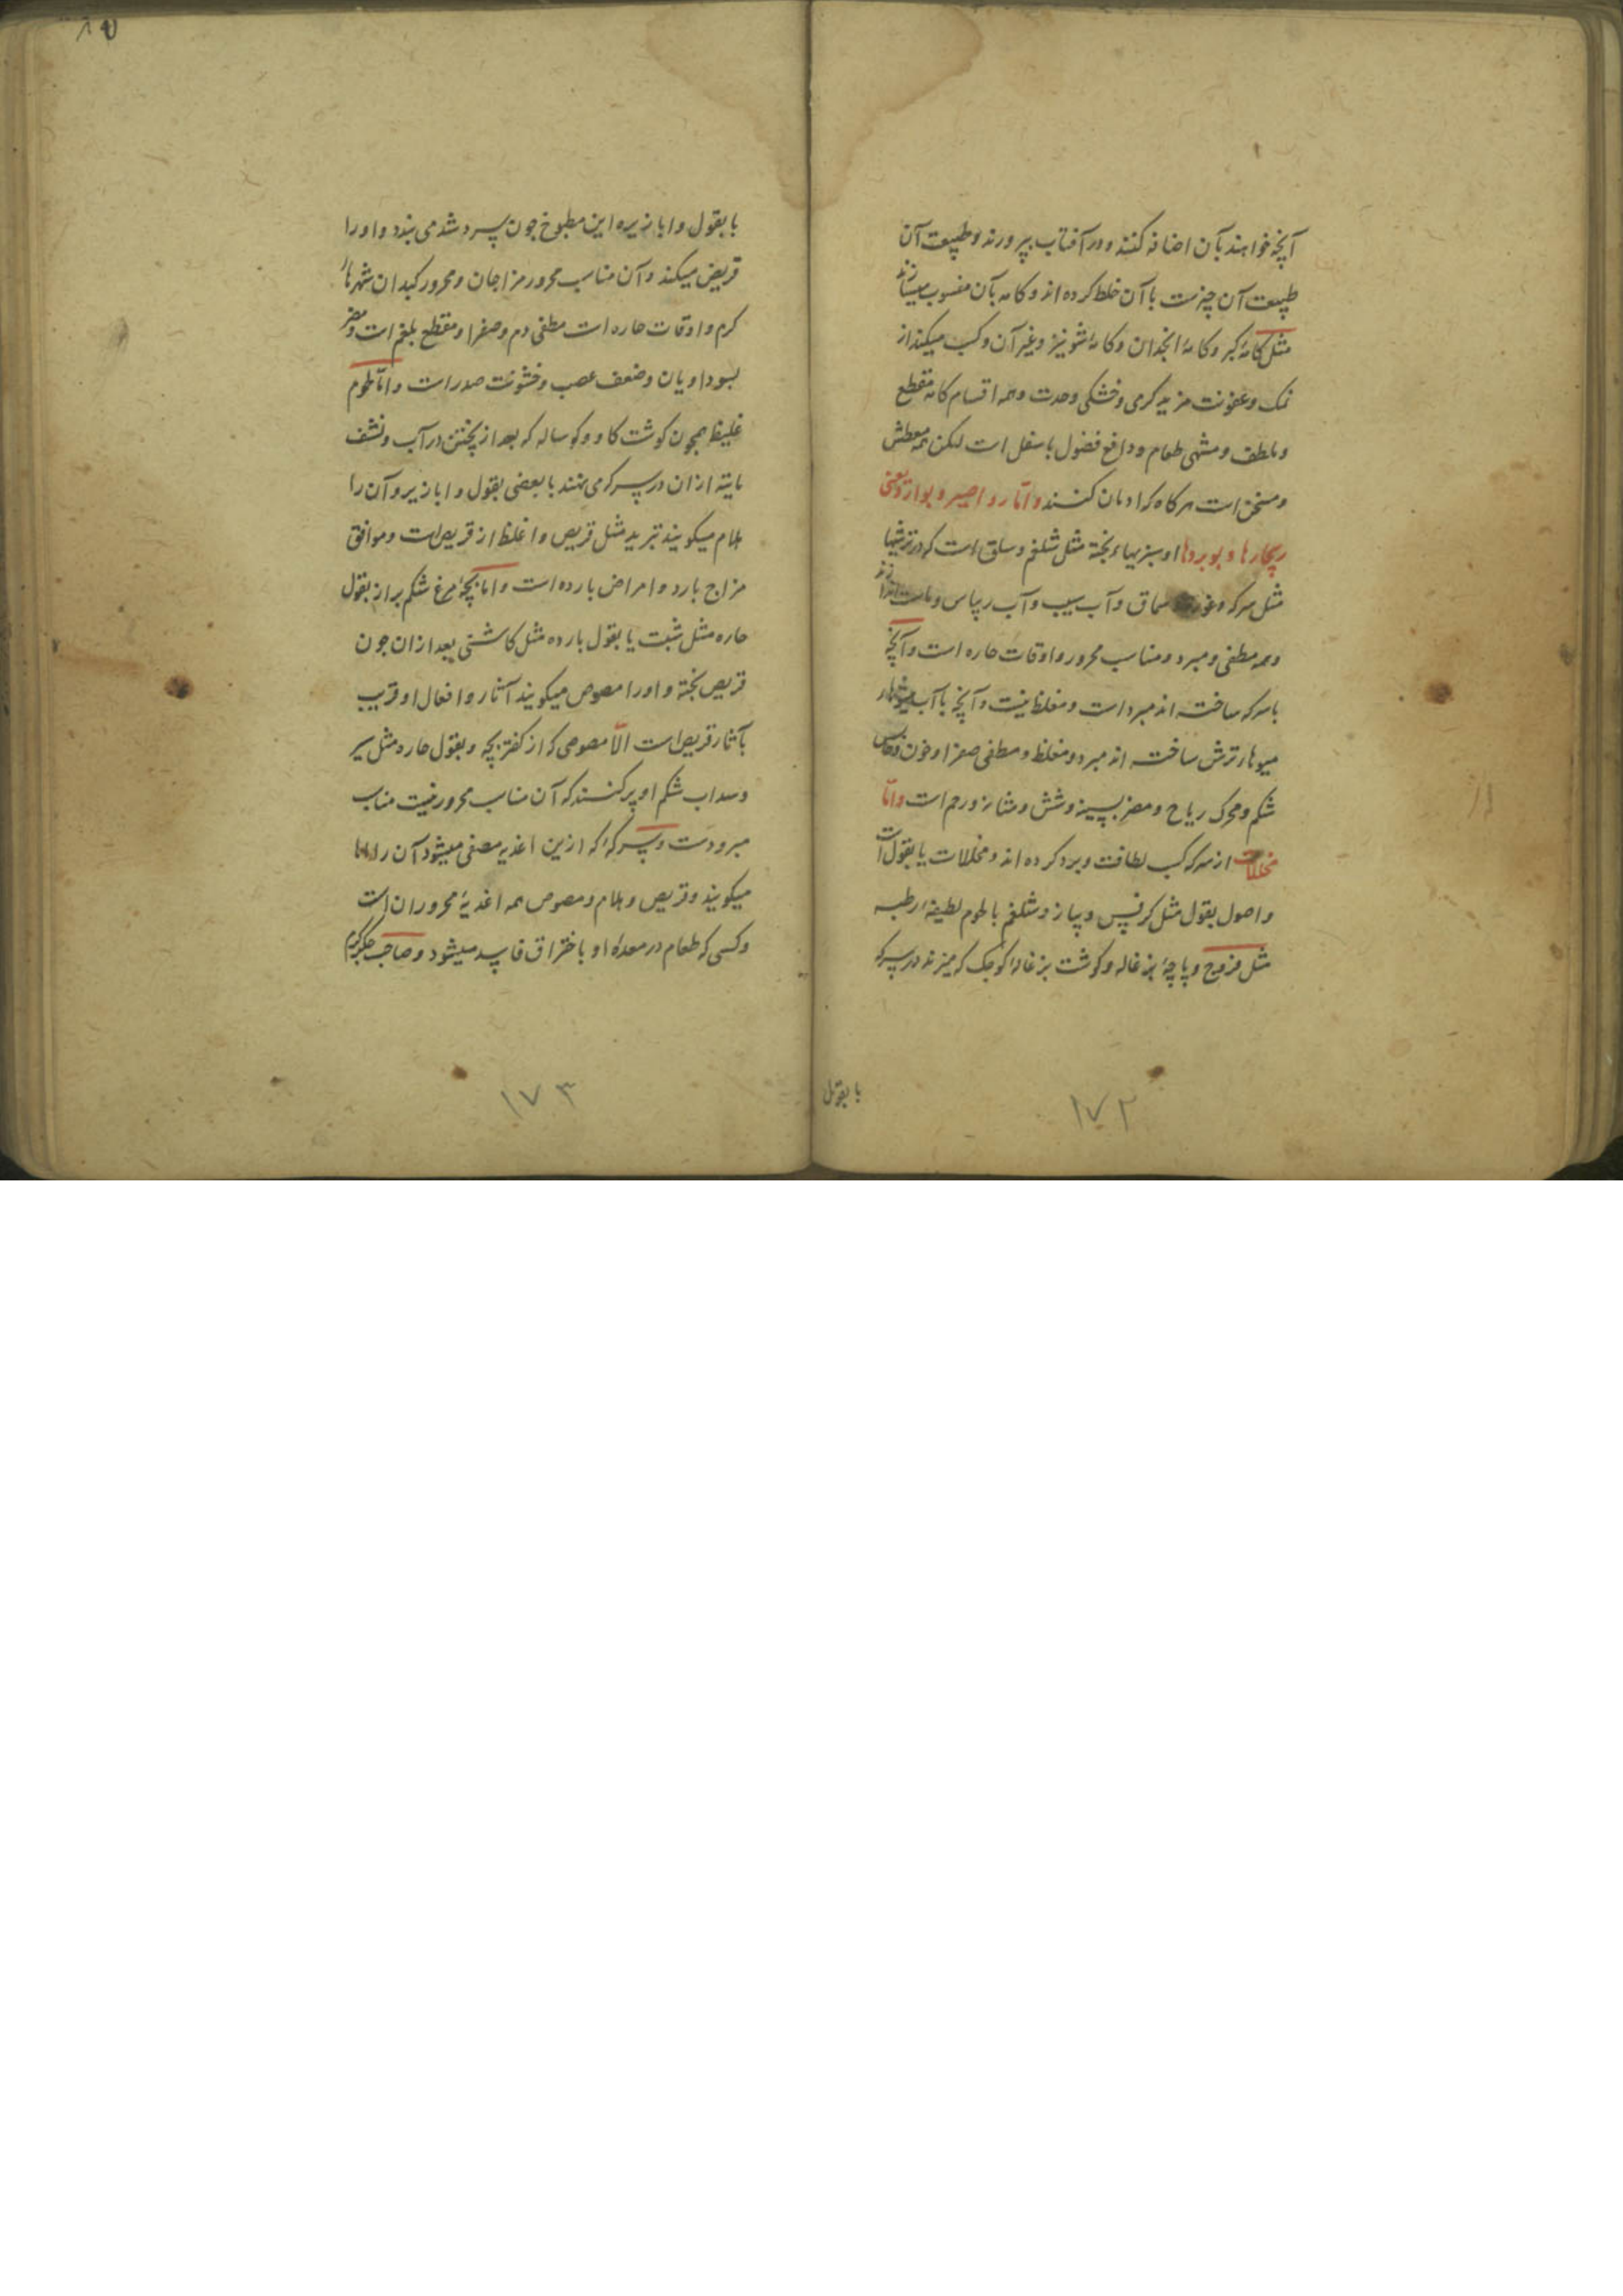 آنچه خواهند بآن اضافه کنند و در آفتاب بپرورند و طبیعت آن
طبیعت آن چیزست با آن خلط کرده اند و کامه بآن منسوب میسازند
مثل کامۀ کبر و کامۀ انجدان و کامۀ شونیز و غیر آن و کسب میکند از
نمک و عفونت مزید گرمی و خشکی و حدت و همه اقسام کامه مقطع
و ملطف و مشهی طعام و دافع فضول باسفل است لیکن همه معطش
و مسخن است هرکاه که ادمان کنند و اما رواصیر و بوارد یعنی
ریچارها و بوبردها او سبزیهاء پخته مثل شلغم و سلق است که در ترشیها
مثل سرکه و غوره سماق و آب سیب و آب ریباس و ماست اندازند
و همه مطفی و مبرد و مناسب محرور و اوقات حاره است و آنچه
با سرکه ساخته اند مبرد است و مغلظ نیست و آنچه با آب
میوهاء ترش ساخته اند مبرد و مغلظ و مطفی صفرا و خون و حابس
شکم و محرک ریاح و مضر بسینه و شش و مثانه و رحم است و اما
مخللات از سرکه کسب لطافت و برد کرده اند و مخللات یا بقول است
و اصول بقول مثل کرفس و پیاز و شلغم یا لحوم لطیفۀ رطبه
مثل فروج و پاچۀ بزغاله و کوشت بزغالۀ کوچک که میپزند در سرکه
با بقول
۱۷۲
با بقول و ابازیره این مطبوخ جون سرد شد می بندد و اورا
قریض میکند و آن مناسب محرور مزاجان و محرور کبدان شهرهاء
کرم و اوقات حاره است مطفی دم و صفرا و مقطع بلغم است و مضر
بسوداویان و ضعف عصب و خشونت صدر است و اما لحوم
غلیظ همچون کوشت کاو و کوساله که بعد از پختن در آب و نشف
مایته از ان در سرکه می نهند با بعضی بقول و ابازیر و آن را
هلام میکویند تبرید مثل قریص و اغلظ از قریص است و موافق
مزاج بارد و امراض بارده است و اما بچۀ مرغ شکم پر از بقول
حاره مثل شبت یا بقول بارده مثل کاشنی بعد از ان جون
قریص پخته و اورا مصوص میکویند آثار و افعال او قریب
بآثار قریص است الّا مصوصی که از کفتر بچه و بقول حاره مثل سیر
و سداب شکم او پر کنند که آن مناسب محرور نیست مناسب
مبرودست و سرکۀ که ازین اغذیه مصفی میشود آن را
میکویند و قریص و هلام و مصوص همه اغذیۀ محروران است
و کسی که طعام در معدۀ او باختراق فاسد میشود و صاحب جکر کرم
۱۷۳